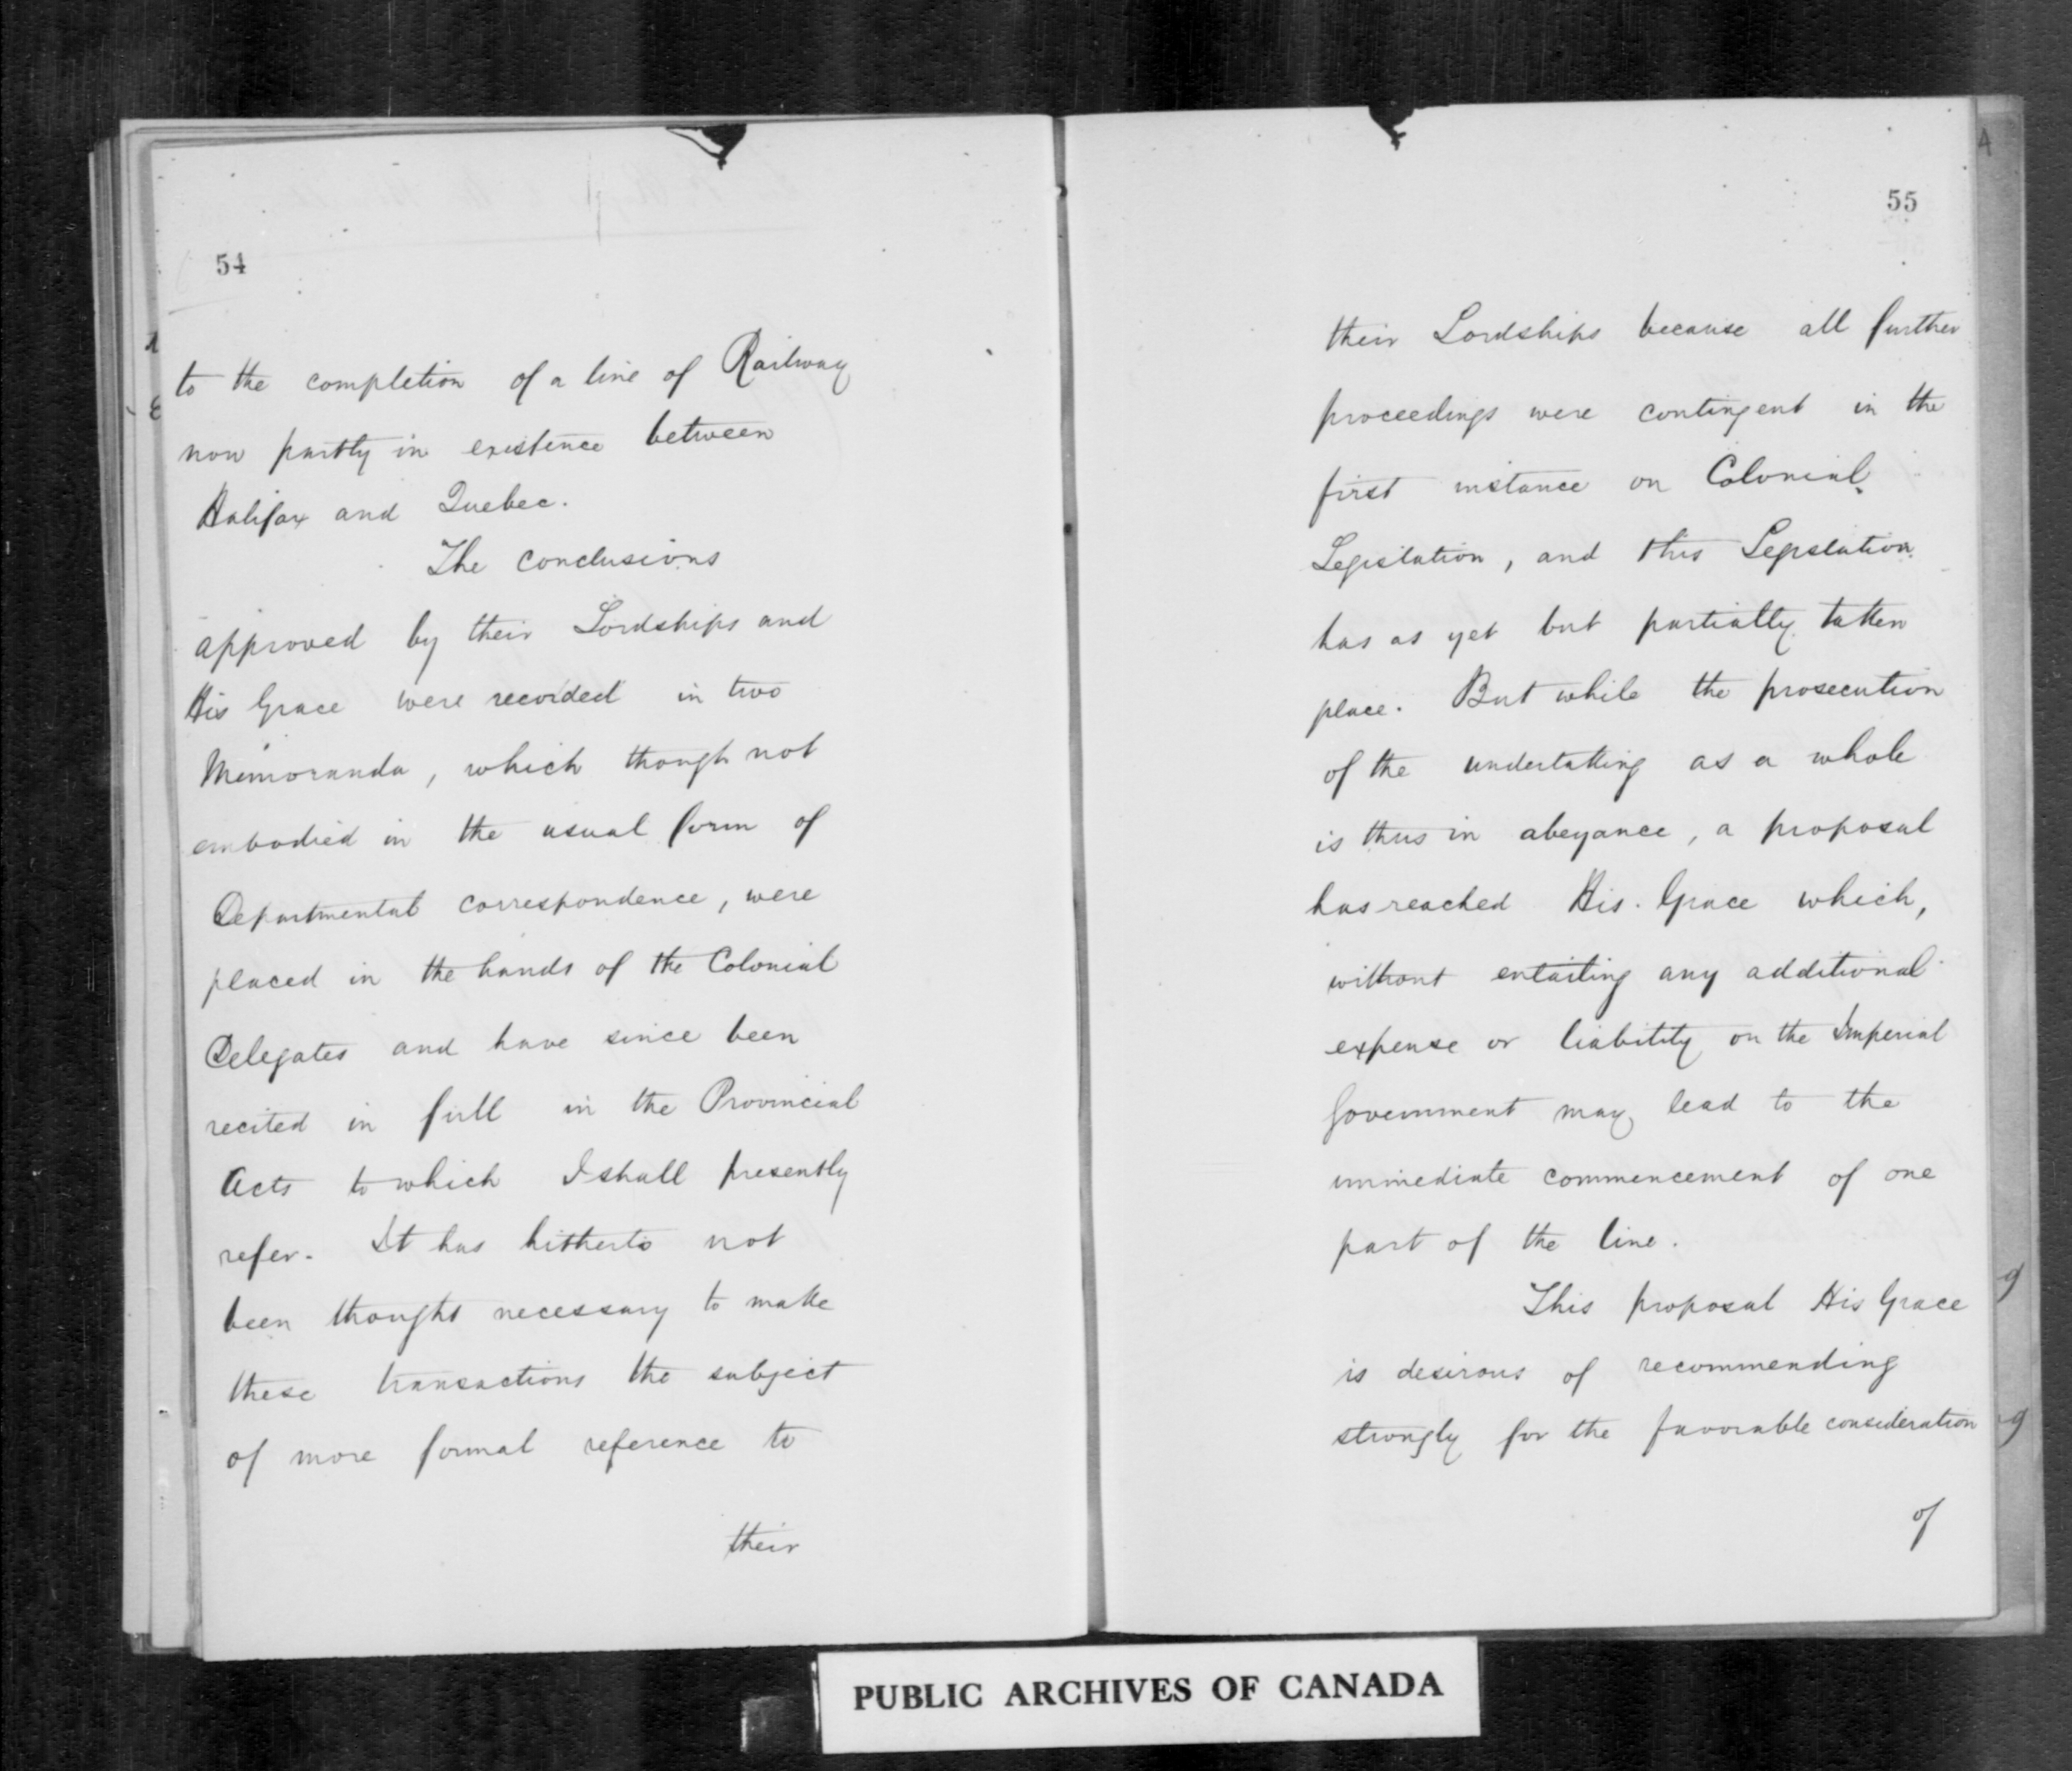 54
to the completion of a line of Railway
now partly in existence between
Halifax and Quebec.
The conclusions
approved by their Lordships and
His Grace were recorded in two
Memoranda, which though not
embodied in the usual form of
Departmental correspondence, were
placed in the hands of the Colonial
Delegates and have since been
recited in full in the Provincial
Acts to which I shall presently
refer. It has hitherto not
been thought necessary to make
these transactions the subject
of more formal reference to
their
55
their Lordships because all further
proceedings were contingent in the
first instance on Colonial
Legislation, and this Legislation
has as yet but partially taken
place. But while the prosecution
of the undertaking as a whole
is thus in abeyance, a proposal
has reached His Grace which,
without entailing any additional
expense or liability on the Imperial
Government may lead to the
immediate commencement of one
part of the line.
This proposal His Grace
is desirous of recommending
strongly for the favorable consideration
of
PUBLIC ARCHIVES OF CANADA